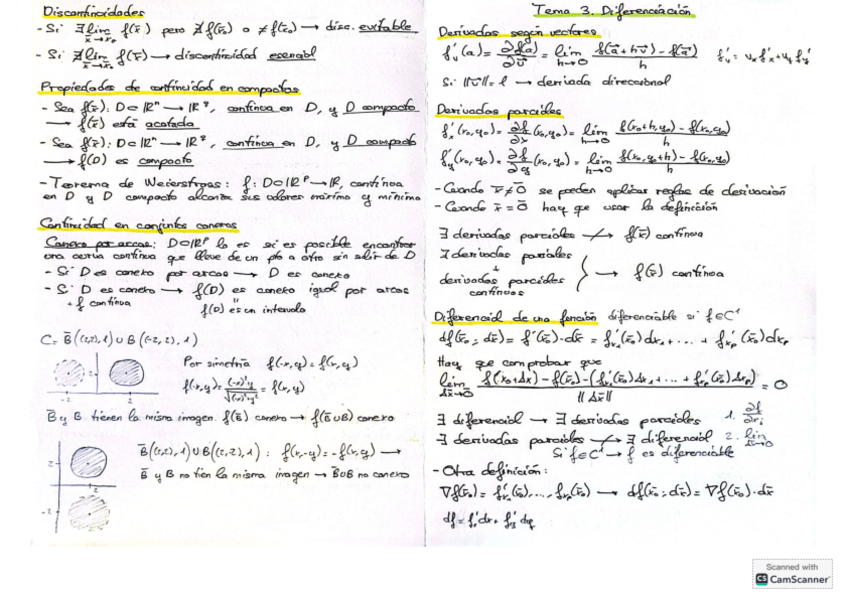 Discontinuidades
- Si ∃ lim f(x̄) pero ∄ f(x̄₀) o ≠ f(x̄₀) → disc. evitable
x̄→x̄₀
- Si ∄ lim f(x̄) → discontinuidad esencial
x̄→x̄₀
Propiedades de continuidad en compactos
- Sea f(x̄): D⊂ℝⁿ → ℝ^q, continua en D, y D compacto
→ f(x̄) está acotada
- Sea f(x̄): D⊂ℝⁿ → ℝ^q, continua en D, y D compacto
→ f(D) es compacto
- Teorema de Weierstrass: f: D⊂ℝ^p → ℝ, continua
en D y D compacto alcanza sus valores máximo y mínimo
Continuidad en conjuntos conexos
Conexo por arcos: D⊂ℝ^p lo es si es posible encontrar
una curva continua que lleve de un pto a otro sin salir de D
- Si D es conexo por arcos → D es conexo
- Si D es conexo → f(D) es conexo igual por arcos
+ f continua
f(D) es un intervalo
C = B̄((2,2), 1) ∪ B((-2,2), 1)
Por simetría f(-x,y) = f(x,y)
f(-x,y) = (-x)²y / √((-x)²+y²) = f(x,y)
-2 2
B̄ y B tienen la misma imagen. f(B̄) conexo → f(B̄∪B) conexo
B̄((2,2), 1) ∪ B((2,2), 1) : f(x,-y) = -f(x,y) →
B̄ y B no tien la misma imagen → B̄∪B no conexo
2
2
-2
Tema 3. Diferenciación
Derivadas según vectores
f'ᵥ(a) = ∂f(a)/∂v̄ = lim h→0 (f(ā+hv̄) - f(ā))/h f'ᵥ = uₓf'ₓ + u_y f'_y
Si ||v̄|| = 1 → derivada direccional
Derivadas parciales
f'ₓ(x₀,y₀) = ∂f/∂x (x₀,y₀) = lim h→0 (f(x₀+h,y₀) - f(x₀,y₀))/h
f'_y(x₀,y₀) = ∂f/∂y (x₀,y₀) = lim h→0 (f(x₀,y₀+h) - f(x₀,y₀))/h
- Cuando x̄≠0̄ se pueden aplicar reglas de derivación
- Cuando x̄=0̄ hay que usar la definición
∃ derivadas parciales ↛ f(x̄) continua
∃ derivadas parciales
+
derivadas parciales
continuas
} → f(x̄) continua
Diferencial de una función diferenciable si f∈C¹
df(x̄₀; dx̄) = f'(x̄₀)·dx̄ = f'ₓ₁(x̄₀)dx₁ + ... + f'ₓₚ(x̄₀)dxₚ
Hay que comprobar que
lim Δx̄→0 (f(x̄₀+Δx̄) - f(x̄₀) - (f'ₓ₁(x̄₀)Δx₁ + ... + f'ₓₚ(x̄₀)Δxₚ))/||Δx̄|| = 0
∃ diferencial → ∃ derivadas parciales 1. ∂f/∂xᵢ
∃ derivadas parciales ↛ ∃ diferencial 2. lim Δx→0
Si f∈C¹ → f es diferenciable
- Otra definición:
∇f(x̄₀) = f'ₓ₁(x̄₀), ..., fₓₚ(x̄₀) → df(x̄₀; dx̄) = ∇f(x̄₀)·dx̄
df = f'ₓdx + f'_y dy
Scanned with
CS CamScanner